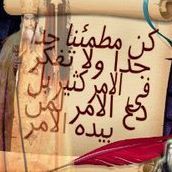 كن مطمئنا جدا
جدا ولا تفكر
في الامر كثيرا بل
دع الامر لمن
بيده الامر